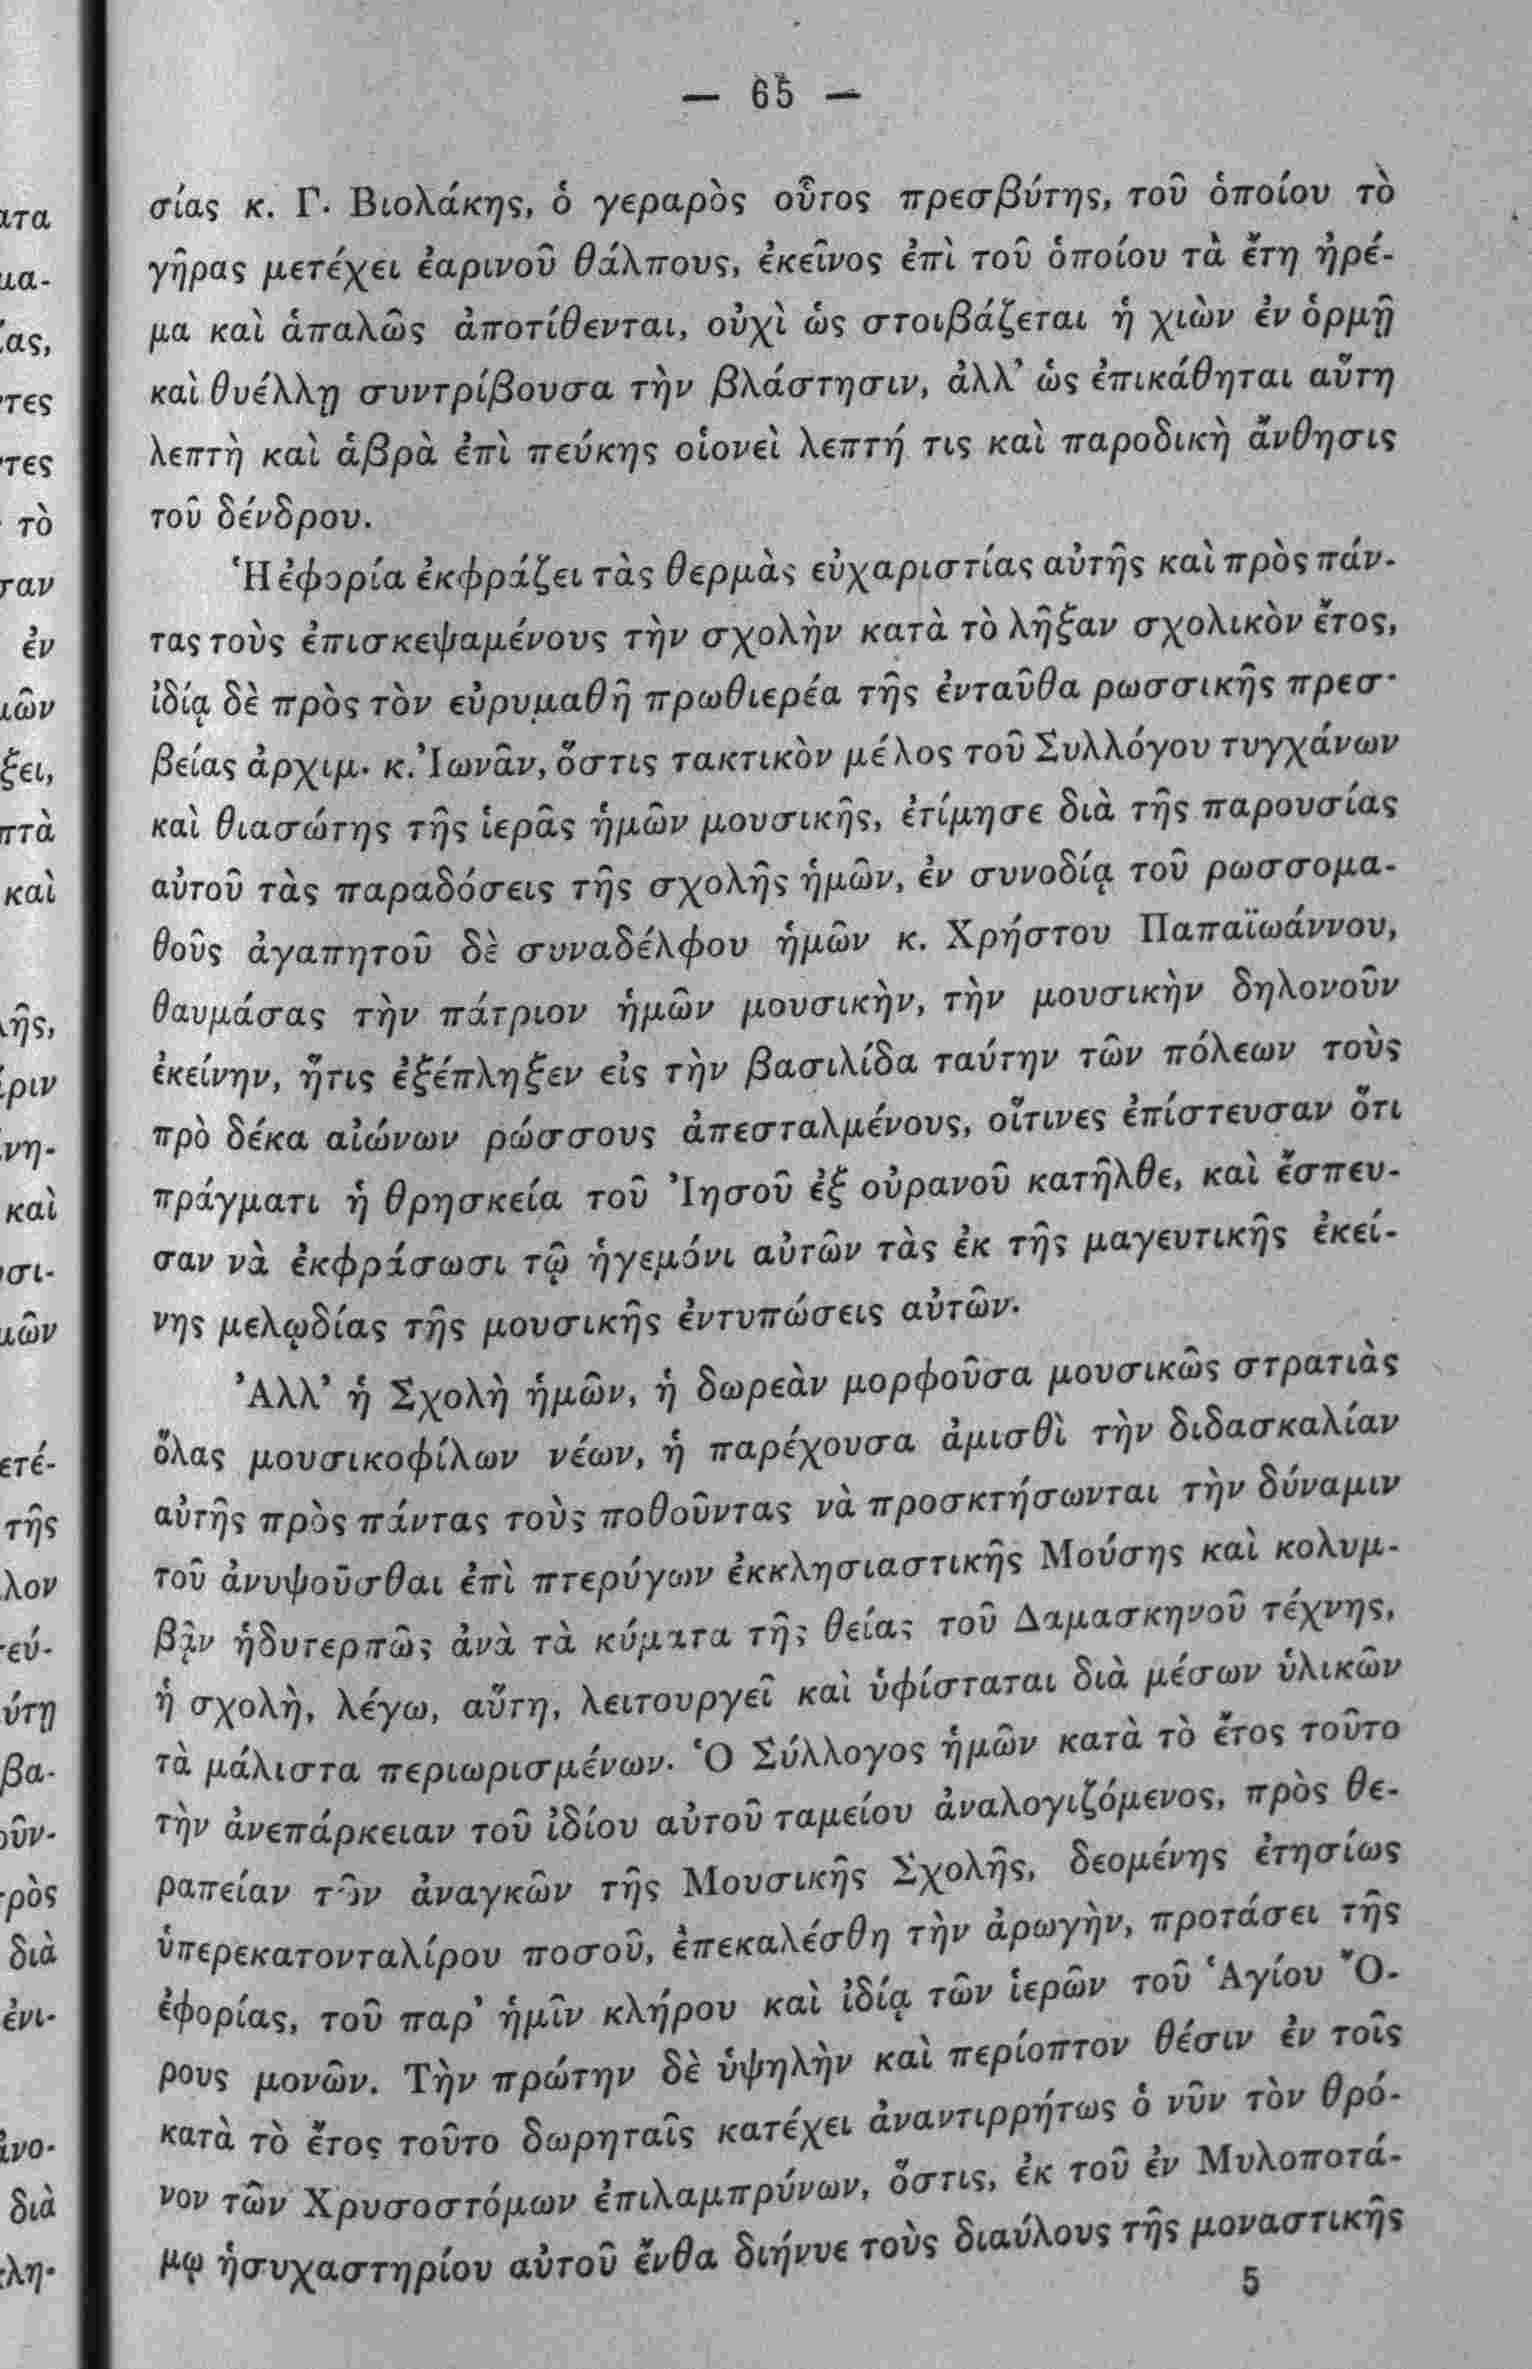 — 65 —
σίας κ. Γ. Βιολάκης, ὁ γεραρὸς οὗτος πρεσβύτης, τοῦ ὁποίου τὸ
γῆρας μετέχει ἐαρινοῦ θάλπους, ἐκεῖνος ἐπὶ τοῦ ὁποίου τὰ ἔτη ἠρέ-
μα καὶ ἁπαλῶς ἀποτίθενται, οὐχὶ ὡς στοιβάζεται ἡ χιὼν ἐν ὁρμῇ
καὶ θυέλλῃ συντρίβουσα τὴν βλάστησιν, ἀλλ' ὡς ἐπικάθηται αὕτη
λεπτὴ καὶ ἁβρὰ ἐπὶ πεύκης οἱονεὶ λεπτή τις καὶ παροδικὴ ἄνθησις
τοῦ δένδρου.
Ἡ ἐφορία ἐκφράζει τὰς θερμὰς εὐχαριστίας αὐτῆς καὶ πρὸς πάν-
τας τοὺς ἐπισκεψαμένους τὴν σχολὴν κατὰ τὸ λῆξαν σχολικὸν ἔτος,
ἰδίᾳ δὲ πρὸς τὸν εὐρυμαθῆ πρωθιερέα τῆς ἐνταῦθα ρωσσικῆς πρεσ-
βείας ἀρχιμ. κ. Ἰωνᾶν, ὅστις τακτικὸν μέλος τοῦ Συλλόγου τυγχάνων
καὶ θιασώτης τῆς ἱερᾶς ἡμῶν μουσικῆς, ἐτίμησε διὰ τῆς παρουσίας
αὐτοῦ τὰς παραδόσεις τῆς σχολῆς ἡμῶν, ἐν συνοδίᾳ τοῦ ρωσσομα-
θοῦς ἀγαπητοῦ δὲ συναδέλφου ἡμῶν κ. Χρήστου Παπαϊωάννου,
θαυμάσας τὴν πάτριον ἡμῶν μουσικὴν, τὴν μουσικὴν δηλονοῦν
ἐκείνην, ἥτις ἐξέπληξεν εἰς τὴν βασιλίδα ταύτην τῶν πόλεων τοὺς
πρὸ δέκα αἰώνων ρώσσους ἀπεσταλμένους, οἵτινες ἐπίστευσαν ὅτι
πράγματι ἡ θρησκεία τοῦ Ἰησοῦ ἐξ οὐρανοῦ κατῆλθε, καὶ ἔσπευ-
σαν νὰ ἐκφράσωσι τῷ ἡγεμόνι αὐτῶν τὰς ἐκ τῆς μαγευτικῆς ἐκεί-
νης μελῳδίας τῆς μουσικῆς ἐντυπώσεις αὐτῶν.
Ἀλλ' ἡ Σχολὴ ἡμῶν, ἡ δωρεὰν μορφοῦσα μουσικῶς στρατιὰς
ὅλας μουσικοφίλων νέων, ἡ παρέχουσα ἀμισθὶ τὴν διδασκαλίαν
αὐτῆς πρὸς πάντας τοὺς ποθοῦντας νὰ προσκτήσωνται τὴν δύναμιν
τοῦ ἀνυψοῦσθαι ἐπὶ πτερύγων ἐκκλησιαστικῆς Μούσης καὶ κολυμ-
βᾷν ἡδυτερπῶς ἀνὰ τὰ κύματα τῆς θείας τοῦ Δαμασκηνοῦ τέχνης,
ἡ σχολὴ, λέγω, αὕτη, λειτουργεῖ καὶ ὑφίσταται διὰ μέσων ὑλικῶν
τὰ μάλιστα περιωρισμένων. Ὁ Σύλλογος ἡμῶν κατὰ τὸ ἔτος τοῦτο
τὴν ἀνεπάρκειαν τοῦ ἰδίου αὐτοῦ ταμείου ἀναλογιζόμενος, πρὸς θε-
ραπείαν τῶν ἀναγκῶν τῆς Μουσικῆς Σχολῆς, δεομένης ἐτησίως
ὑπερεκατονταλίρου ποσοῦ, ἐπεκαλέσθη τὴν ἀρωγὴν, προτάσει τῆς
ἐφορίας, τοῦ παρ' ἡμῖν κλήρου καὶ ἰδίᾳ τῶν ἱερῶν τοῦ Ἁγίου Ὄ-
ρους μονῶν. Τὴν πρώτην δὲ ὑψηλὴν καὶ περίοπτον θέσιν ἐν τοῖς
κατὰ τὸ ἔτος τοῦτο δωρηταῖς κατέχει ἀναντιρρήτως ὁ νῦν τὸν θρό-
νον τῶν Χρυσοστόμων ἐπιλαμπρύνων, ὅστις, ἐκ τοῦ ἐν Μυλοποτά-
μῳ ἡσυχαστηρίου αὐτοῦ ἔνθα διήνυε τοὺς διαύλους τῆς μοναστικῆς
5